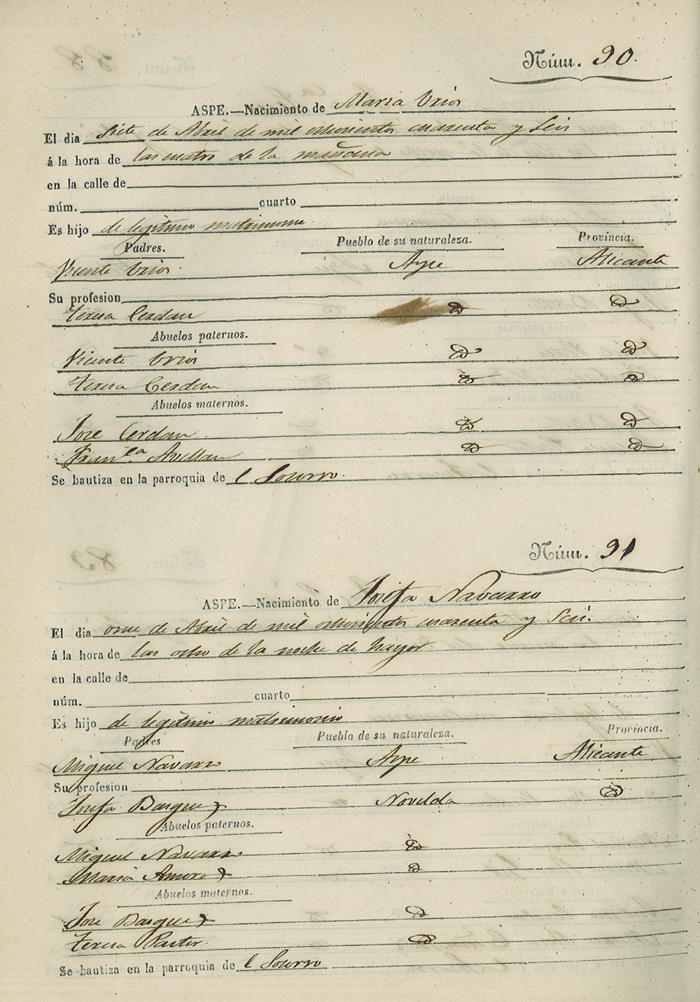 Núm. 90.
ASPE.—Nacimiento de Maria Urios
El dia Siete de Abril de mil ochocientos cuarenta y Seis
á la hora de las cuatro de la mañana
en la calle de
núm. cuarto
Es hijo de legitimo matrimonio
Padres. Pueblo de su naturaleza. Provincia.
Vicente Urios. Aspe Alicante
Su profesion
Teresa Cerdan id id
Abuelos paternos.
Vicente Urios id id
Teresa Cerdan id id
Abuelos maternos.
Jose Cerdan id id
Fran.ca Avellan id id
Se bautiza en la parroquia de l Socorro.
Núm. 91
ASPE.—Nacimiento de Josefa Navarro
El dia once de Abril de mil ochocientos cuarenta y Seis.
á la hora de las ocho de la noche de hayer
en la calle de
núm. cuarto
Es hijo de legitimo matrimonio
Padres Pueblo de su naturaleza. Provincia.
Miguel Navarro Aspe Alicante
Su profesion
Josefa Basques Novelda id
Abuelos paternos.
Miguel Navarro id
Maria Amoros id
Abuelos maternos.
Jose Basques id
Teresa Pastor id
Se bautiza en la parroquia de l Socorro